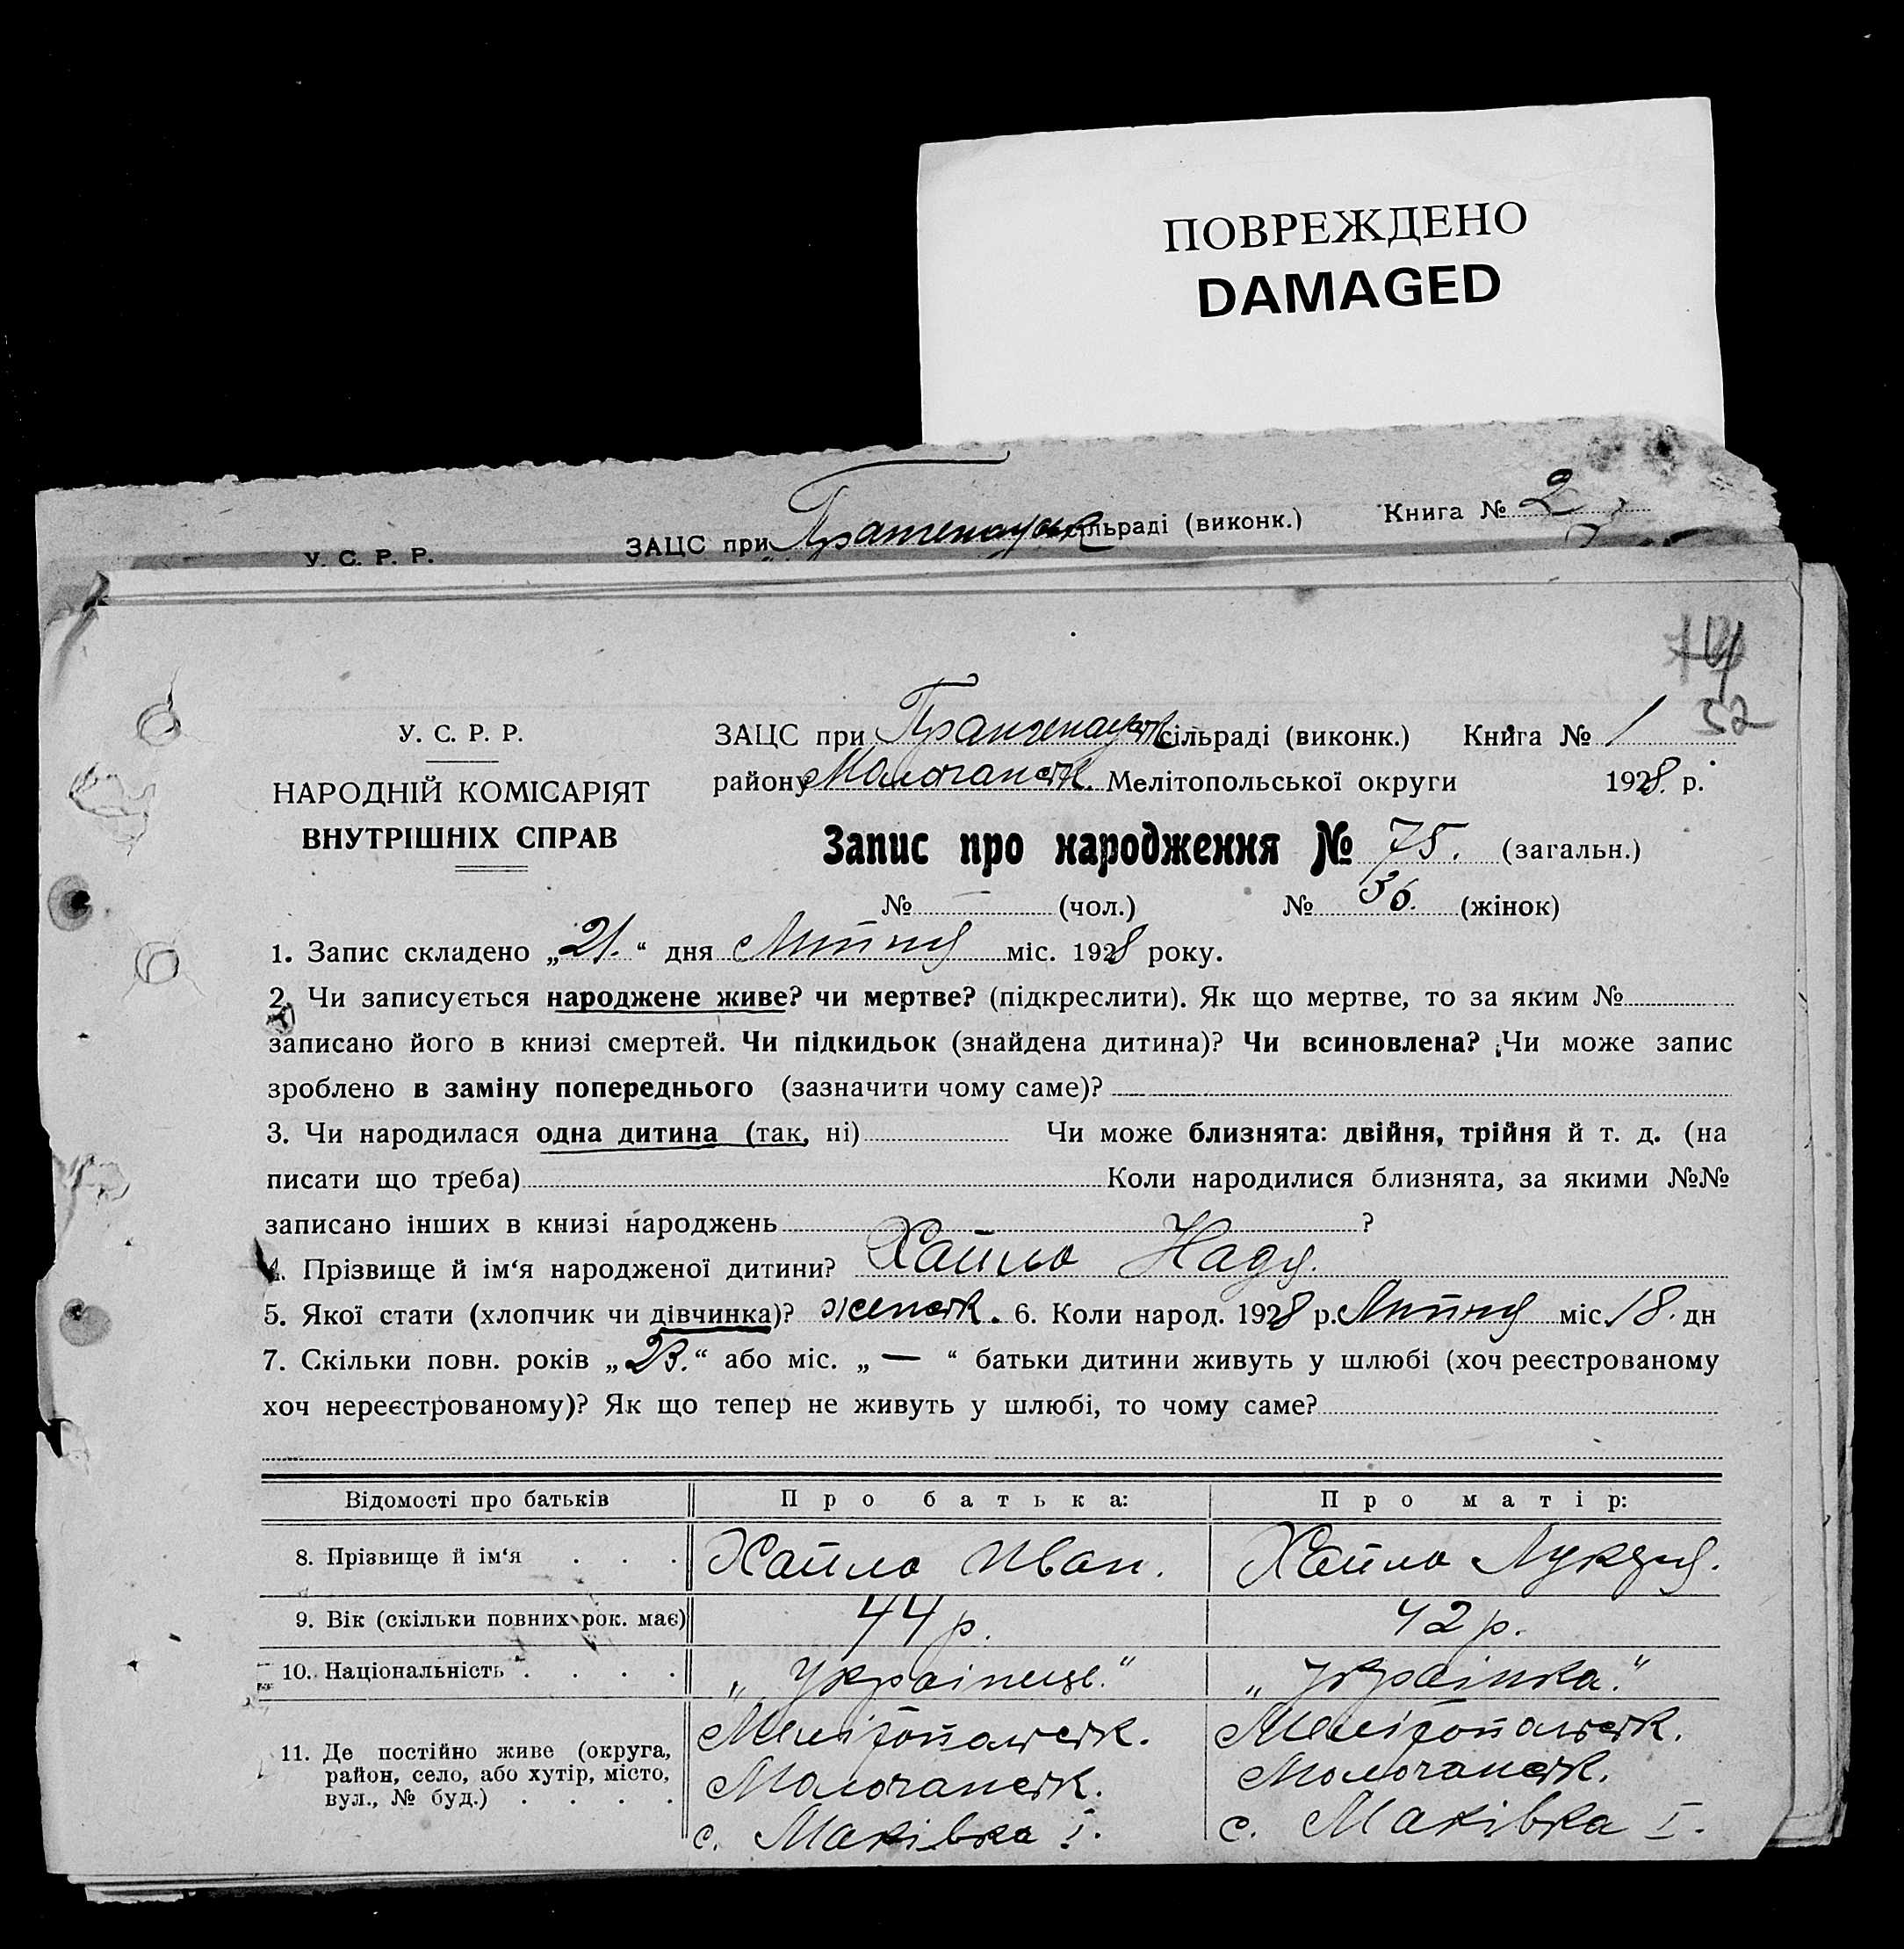 ПОВРЕЖДЕНО
DAMAGED
У. С. Р. Р. ЗАЦС при сільраді (виконк.) Книга № 2
74
52
У. С. Р. Р.
НАРОДНІЙ КОМІСАРІЯТ
ВНУТРІШНІХ СПРАВ
ЗАЦС при сільраді (виконк.) Книга № 1
району Молочанськ. Мелітопольської округи 1928. р.
Запис про народження № 75. (загальн.)
№ — (чол.) № 36. (жінок)
1. Запис складено „21.“ дня Липня міс. 1928 року.
2. Чи записується народжене живе? чи мертве? (підкреслити). Як що мертве, то за яким №
записано його в книзі смертей. Чи підкидьок (знайдена дитина)? Чи всиновлена? Чи може запис
зроблено в заміну попереднього (зазначити чому саме)?
3. Чи народилася одна дитина (так, ні) Чи може близнята: двійня, трійня й т. д. (на
писати що треба) Коли народилися близнята, за якими №№
записано інших в книзі народжень ?
4. Прізвище й ім‘я народженої дитини? Хайло Надя.
5. Якої стати (хлопчик чи дівчинка)? женськ. 6. Коли народ. 1928 р. Липня міс. 18. дн
7. Скільки повн. років „23.“ або міс. „—“ батьки дитини живуть у шлюбі (хоч реєстрованому
хоч нереєстрованому)? Як що тепер не живуть у шлюбі, то чому саме?
Відомості про батьків Про батька: Про матір:
8. Прізвище й ім‘я . . . Хайло Иван. Хайло
9. Вік (скільки повних рок. має) 44 р. 42 р.
10. Національність . . . . „Українець.“ „Українка.“
11. Де постійно живе (округа, район, село, або хутір, місто, вул., № буд.) . . . .
Мелітопольськ. Мелітопольськ.
Молочанськ. Молочанськ.
с. Маківка I. с. Маківка I.